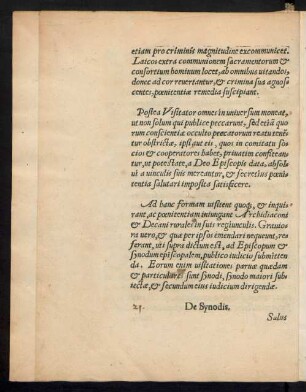 etiam pro criminis magnitudine excommunicet.
Laicos extra communionem sacramentorum &
consortium hominum locet, ab omnibus vitandos,
donec ad cor revertantur, & crimina sua agnos-
centes, pœnitentiæ remedia suscipiant.
Postea Visitator omnes in universum moneat,
ut non solum qui publice peccarunt, sed etiã quo-
rum conscientiæ occulto peccatorum reatu tenẽn-
tur obstrictæ, ipsi aut eis, quos in comitatu so-
cios & cooperatores habet, privatim confitean-
tur, ut potestate, a Deo Episcopis data, absol-
vi a vinculis suis mereantur, & secretius pœni-
tentia salutari imposita satisfacere.
Ad hanc formam visitent quoq;, & inqui-
rant, ac pœnitentiam iniungant Archidiaconi
& Decani rurales in suis regiunculis. Graviora
vero, & quæ per ipsos emendari nequeunt, re-
ferant, uti supra dictum est, ad Episcopum &
Synodum episcopalem, publico iudicio submitten-
da. Eorum enim visitationes parvæ quædam
& particulares sunt synodi, synodo maiori subie-
ctæ, & secundum eius iudicium dirigendæ.
De Synodis.
Salus